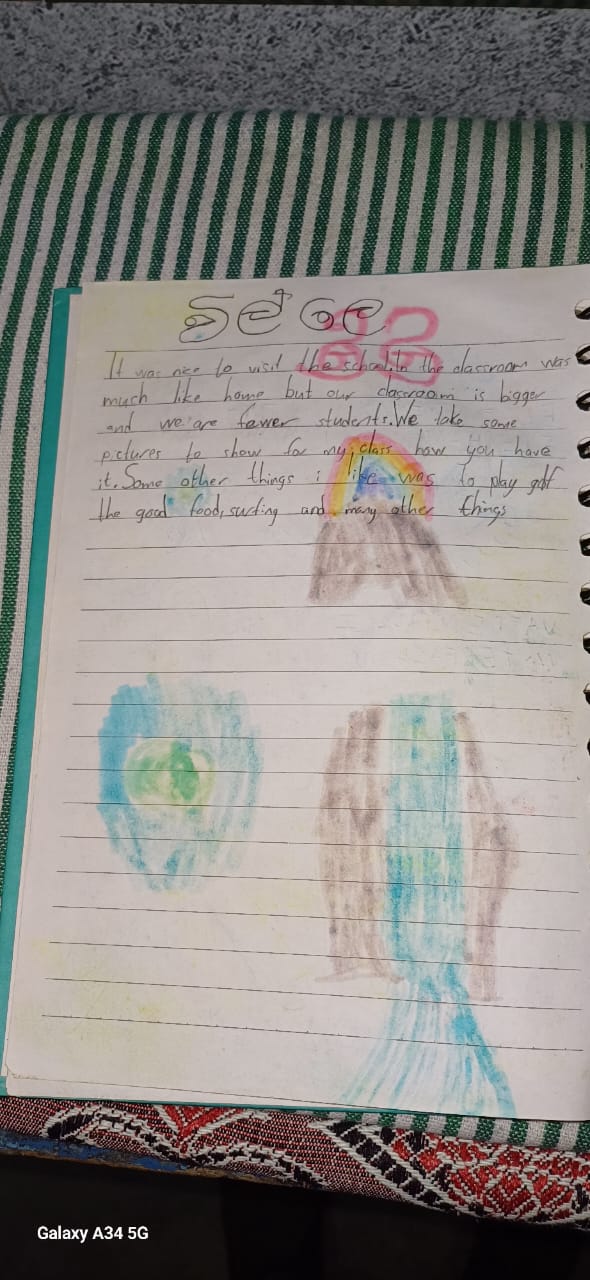 විල් ලෙ
It was nice to visit the school.In the classroom was
much like home but our classroom is bigger
and we are fewer students.We take some
pictures to show for my class how you have
it. Some other things i like was to play golf
the good food, surfing and many other things
Galaxy A34 5G